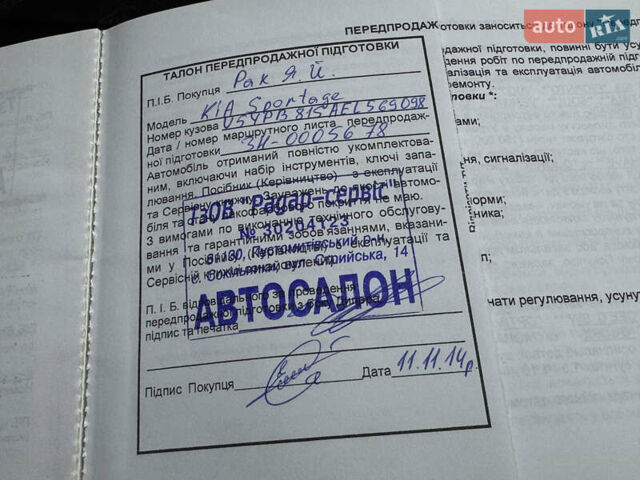 ПЕРЕДПРОДАЖ
отовки заноситься
auto RIA .com
ТАЛОН ПЕРЕДПРОДАЖНОЇ ПІДГОТОВКИ
П.І.Б. Покупця Рак Я Й.
Модель KIA Sportage
Номер кузова U5YPB815AEL569098
Дата / номер маршрутного листа передпродаж-
ної підготовки ЗН-0005678
Автомобіль отриманий повністю укомплектова-
ним, включаючи набір інструментів, ключі запа-
лювання, Посібник (Керівництво) з експлуатації
та Сервісну книжку. Зауважень по якості автомо-
біля та стану лакофарбового покриття не маю.
З вимогами по виконанню технічного обслугову-
вання та гарантійними зобов'язаннями, вказани-
ми у Посібнику (Керівництво) з експлуатації та
Сервісній книжці
ТЗОВ "Радар-сервіс"
№ 30204123
81130, Пустомитівський р-н,
с. Сокільники, вул. Стрийська, 14
АВТОСАЛОН
П. І. Б. відповідального за проведення
передпродажної підготовки з боку Дилера,
підпис та печатка
Підпис Покупця
Дата 11.11.14р.
дажної підготовки, повинні бути усу
ення робіт по передпродажній під
алізація та експлуатація автомобіл
ремонту.
отовки *:
ня, сигналізації;
орми;
ника;
чати регулювання, усуну